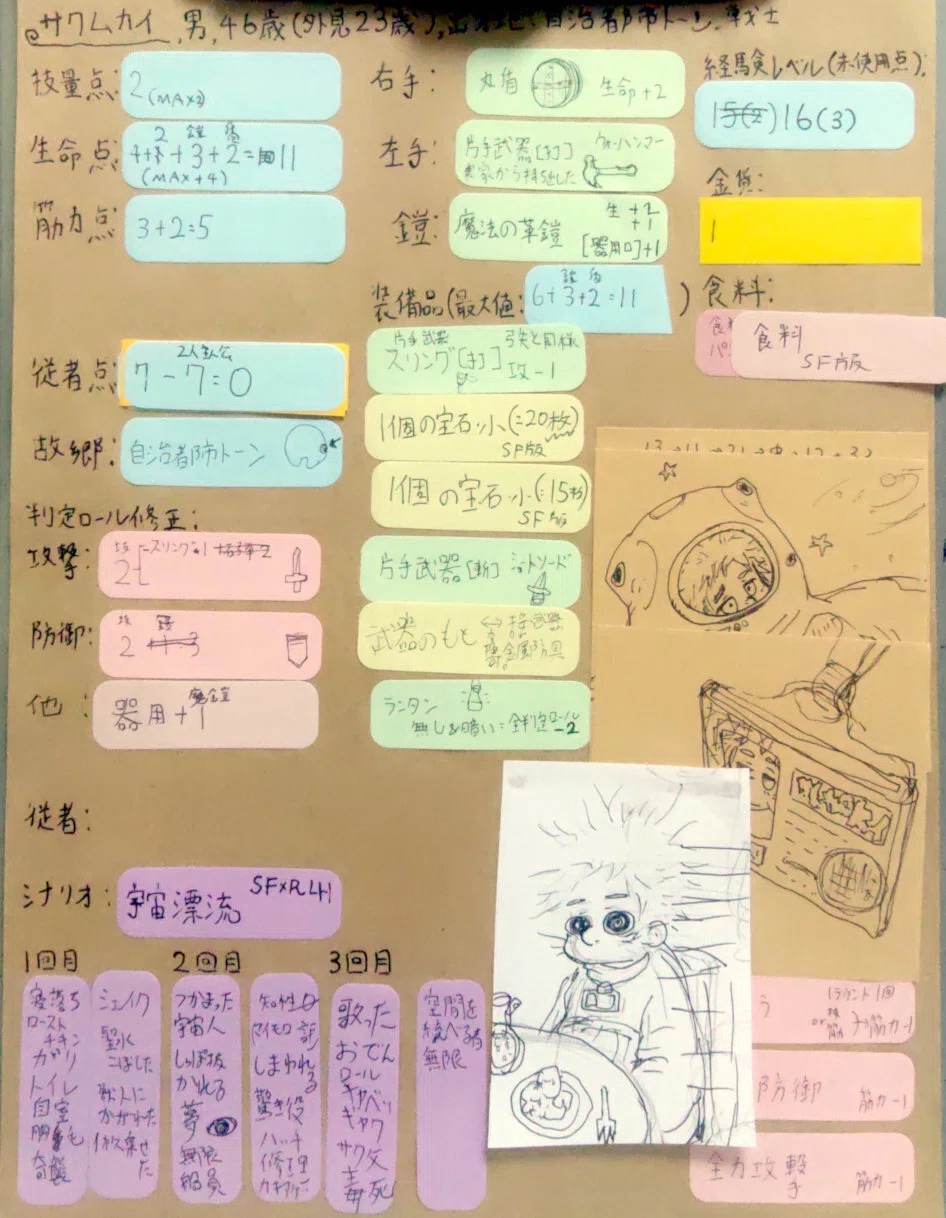 サクムカイ,男,46歳(外見23歳),自治都市トーン,戦士
技量点:
2(MAX3)
生命点:
+3+2=11
(MAX+4)
筋力点:
3+2=5
従者点:
2人主人公
7-7=0
故郷:
自治都市トーン
判定ロール修正:
攻撃:
2
スリング-1
防御:
2
他:
器用+1
魔金鎧
右手:
丸盾
生命+2
左手:
片手武器[打]
ウォーハンマー
実家から持ち出した
鎧:
魔法の革鎧
生+2
+1
[器用ロ]+1
装備品(最大値:
6+3+2=11
)
片手武器
弓矢と同様
スリング[打]
攻-1
1個の宝石・小(=20枚)
SF版
1個の宝石・小(=15枚)
SF版
片手武器[斬]
ショートソード
武器のもと
ランタン
無しで暗い=全判定ロール-2
経験レベル(未使用点):
15(2)16(3)
金貨:
1
食料:
食料
SF版
従者:
シナリオ:
宇宙漂流
SF×R.L41
1回目
寝落ち
ロースト
チキン
ガリ
トイレ
自室
奇襲
シェイク
こぼした
歌人に
2回目
つかまった
宇宙人
しっぽ抜
かれる
夢
無限
船員
知性ロ
しまわれる
驚き役
ハッチ
修理
3回目
歌った
おでん
ロール
キャベツ
ギャク
サク父
毒死
空間を
統べる者
無限
1ラウンド1回
筋力-1
防御
筋力-1
全力攻撃
筋力-1